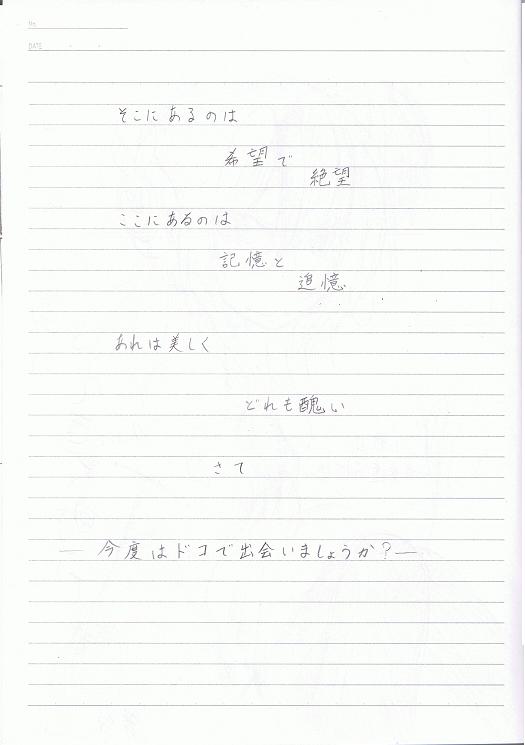 No.
DATE
そこにあるのは
希望で
絶望
ここにあるのは
記憶と
追憶
あれは美しく
どれも醜い
さて
― 今度はドコで出会いましょうか?―